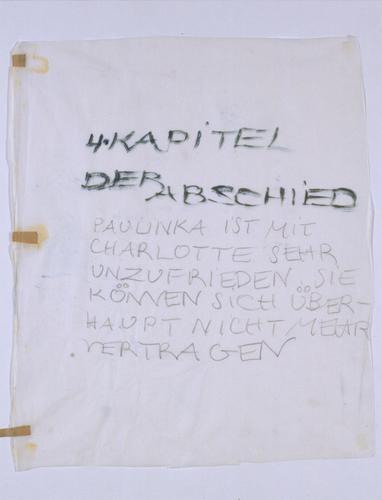 4. KAPITEL
DER ABSCHIED
PAULINKA IST MIT
CHARLOTTE SEHR
UNZUFRIEDEN. SIE
KÖNNEN SICH ÜBER-
HAUPT NICHT MEHR
VERTRAGEN